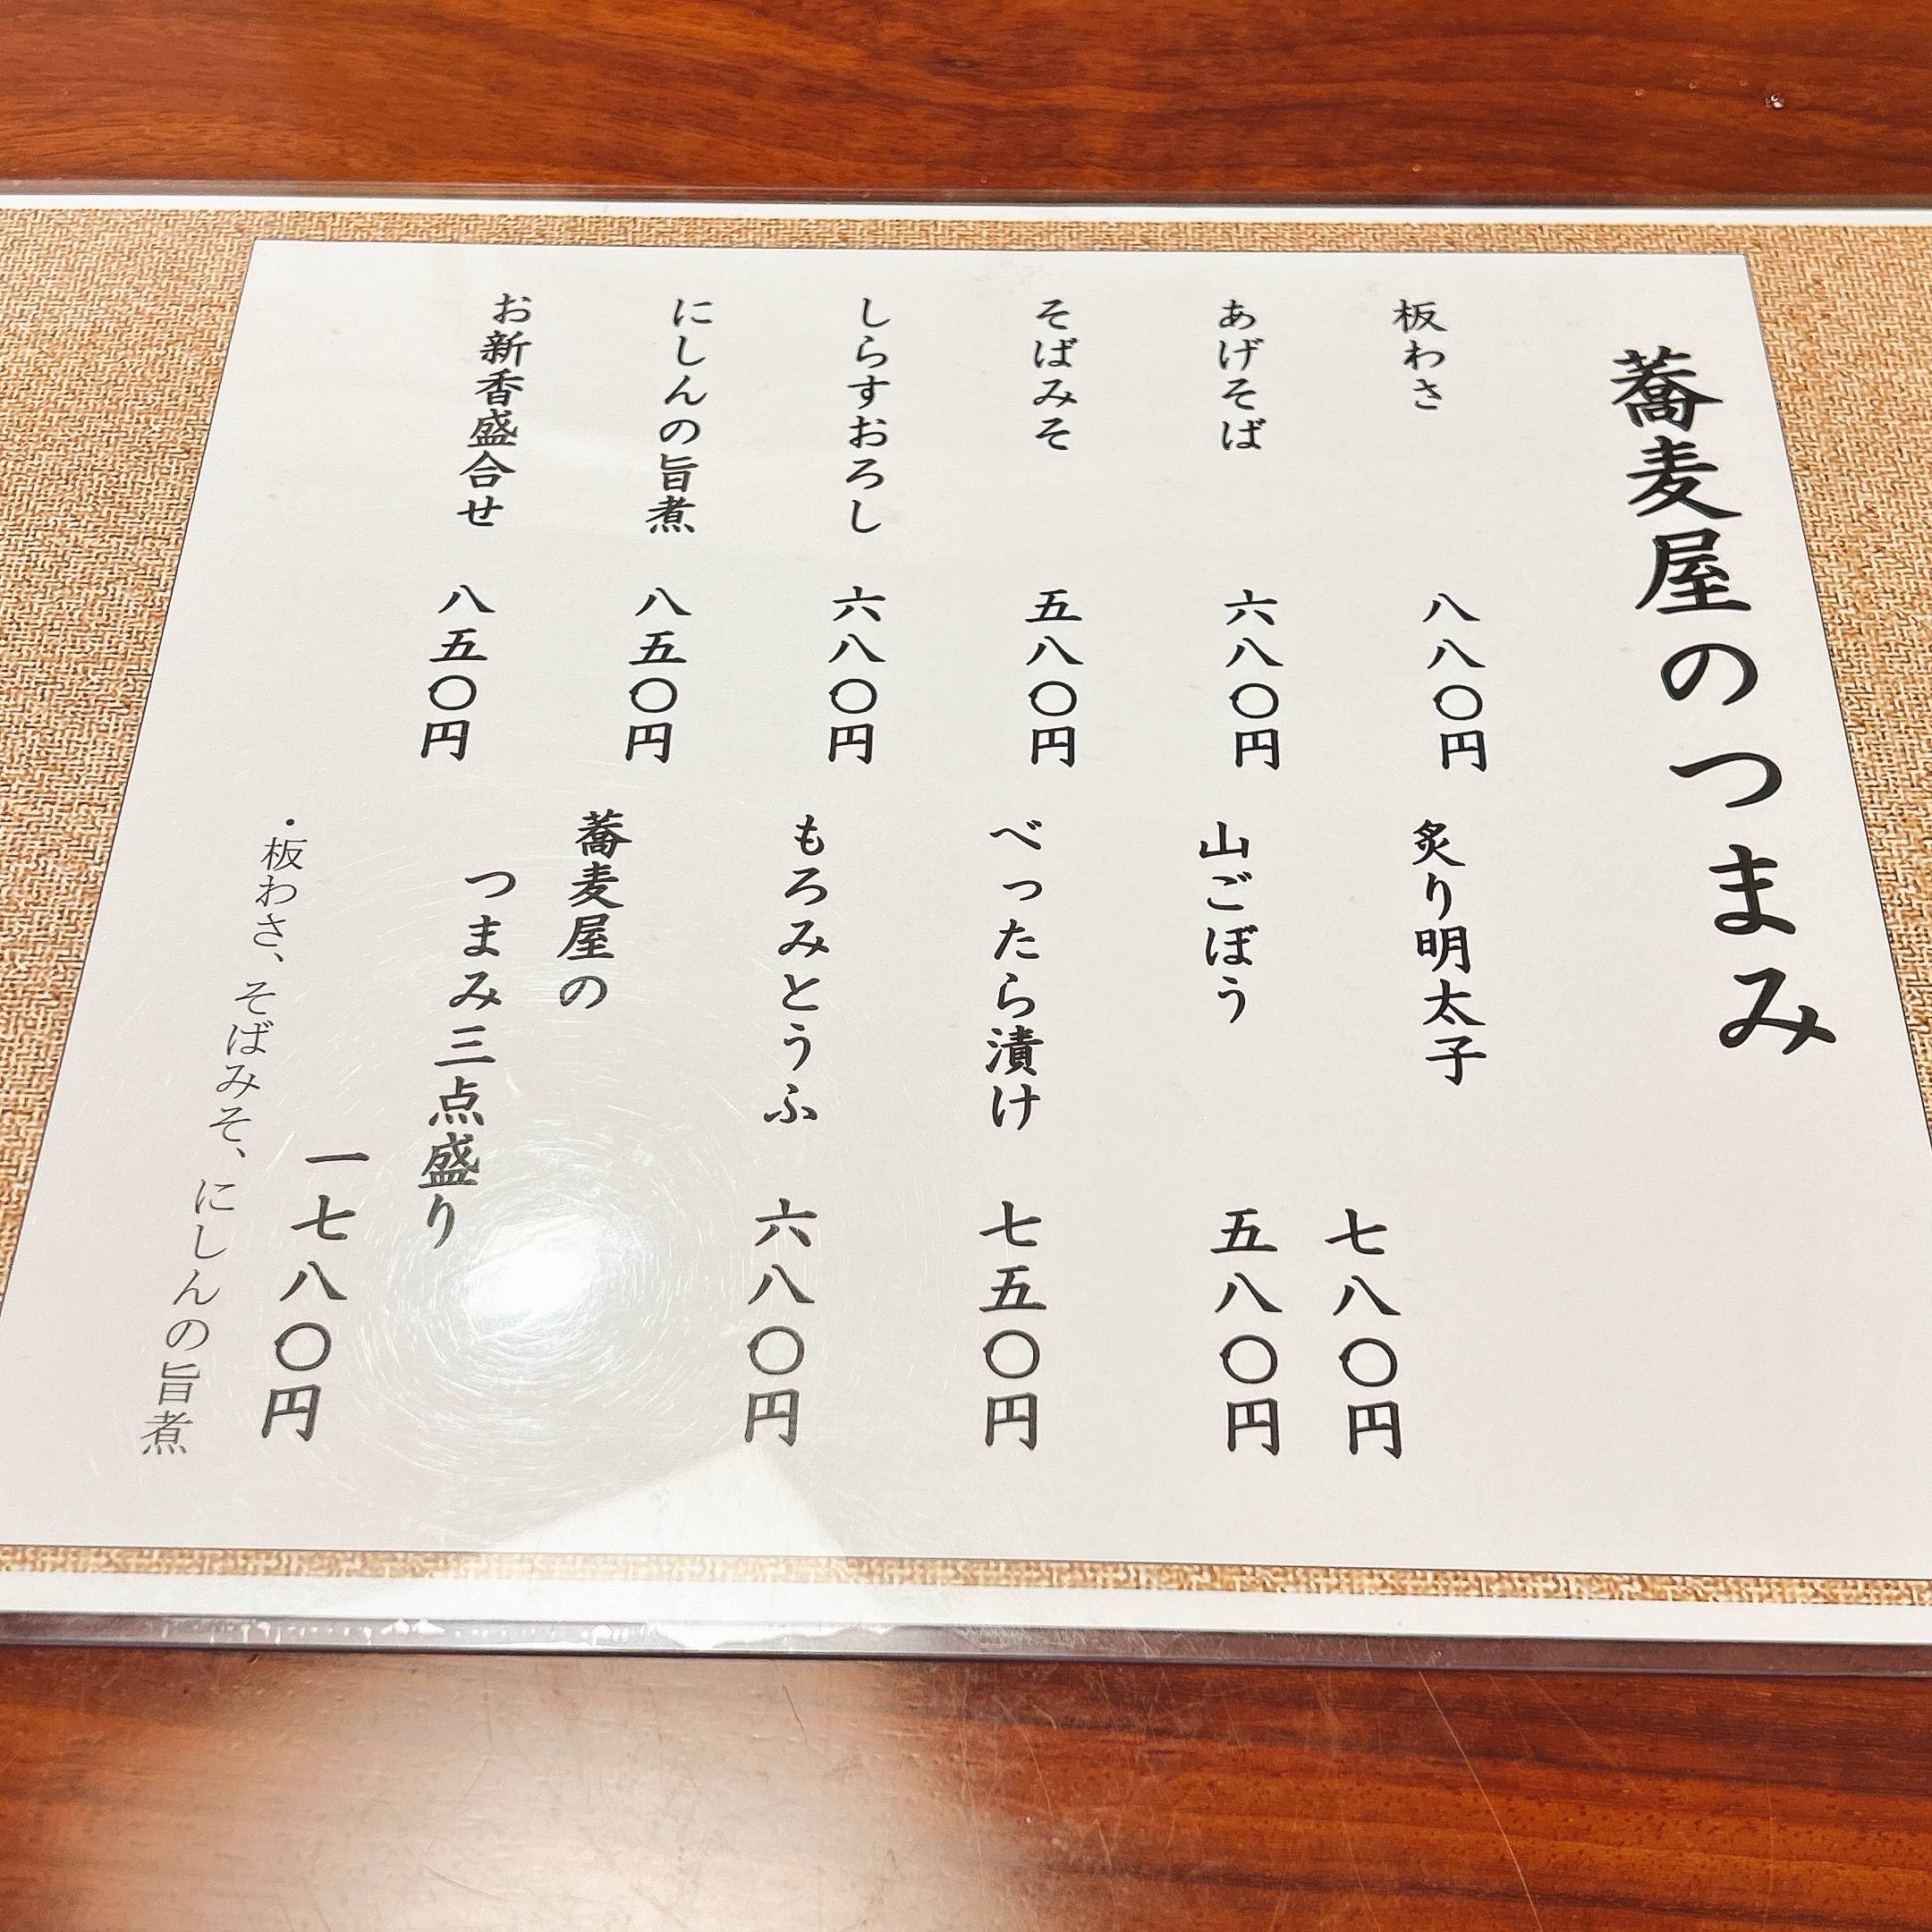 蕎麦屋のつまみ
板わさ 八八〇円
あげそば 六八〇円
そばみそ 五八〇円
しらすおろし 六八〇円
にしんの旨煮 八五〇円
お新香盛合せ 八五〇円
炙り明太子 七八〇円
山ごぼう 五八〇円
べったら漬け 七五〇円
もろみとうふ 六八〇円
蕎麦屋の
つまみ三点盛り
一七八〇円
・板わさ、そばみそ、にしんの旨煮